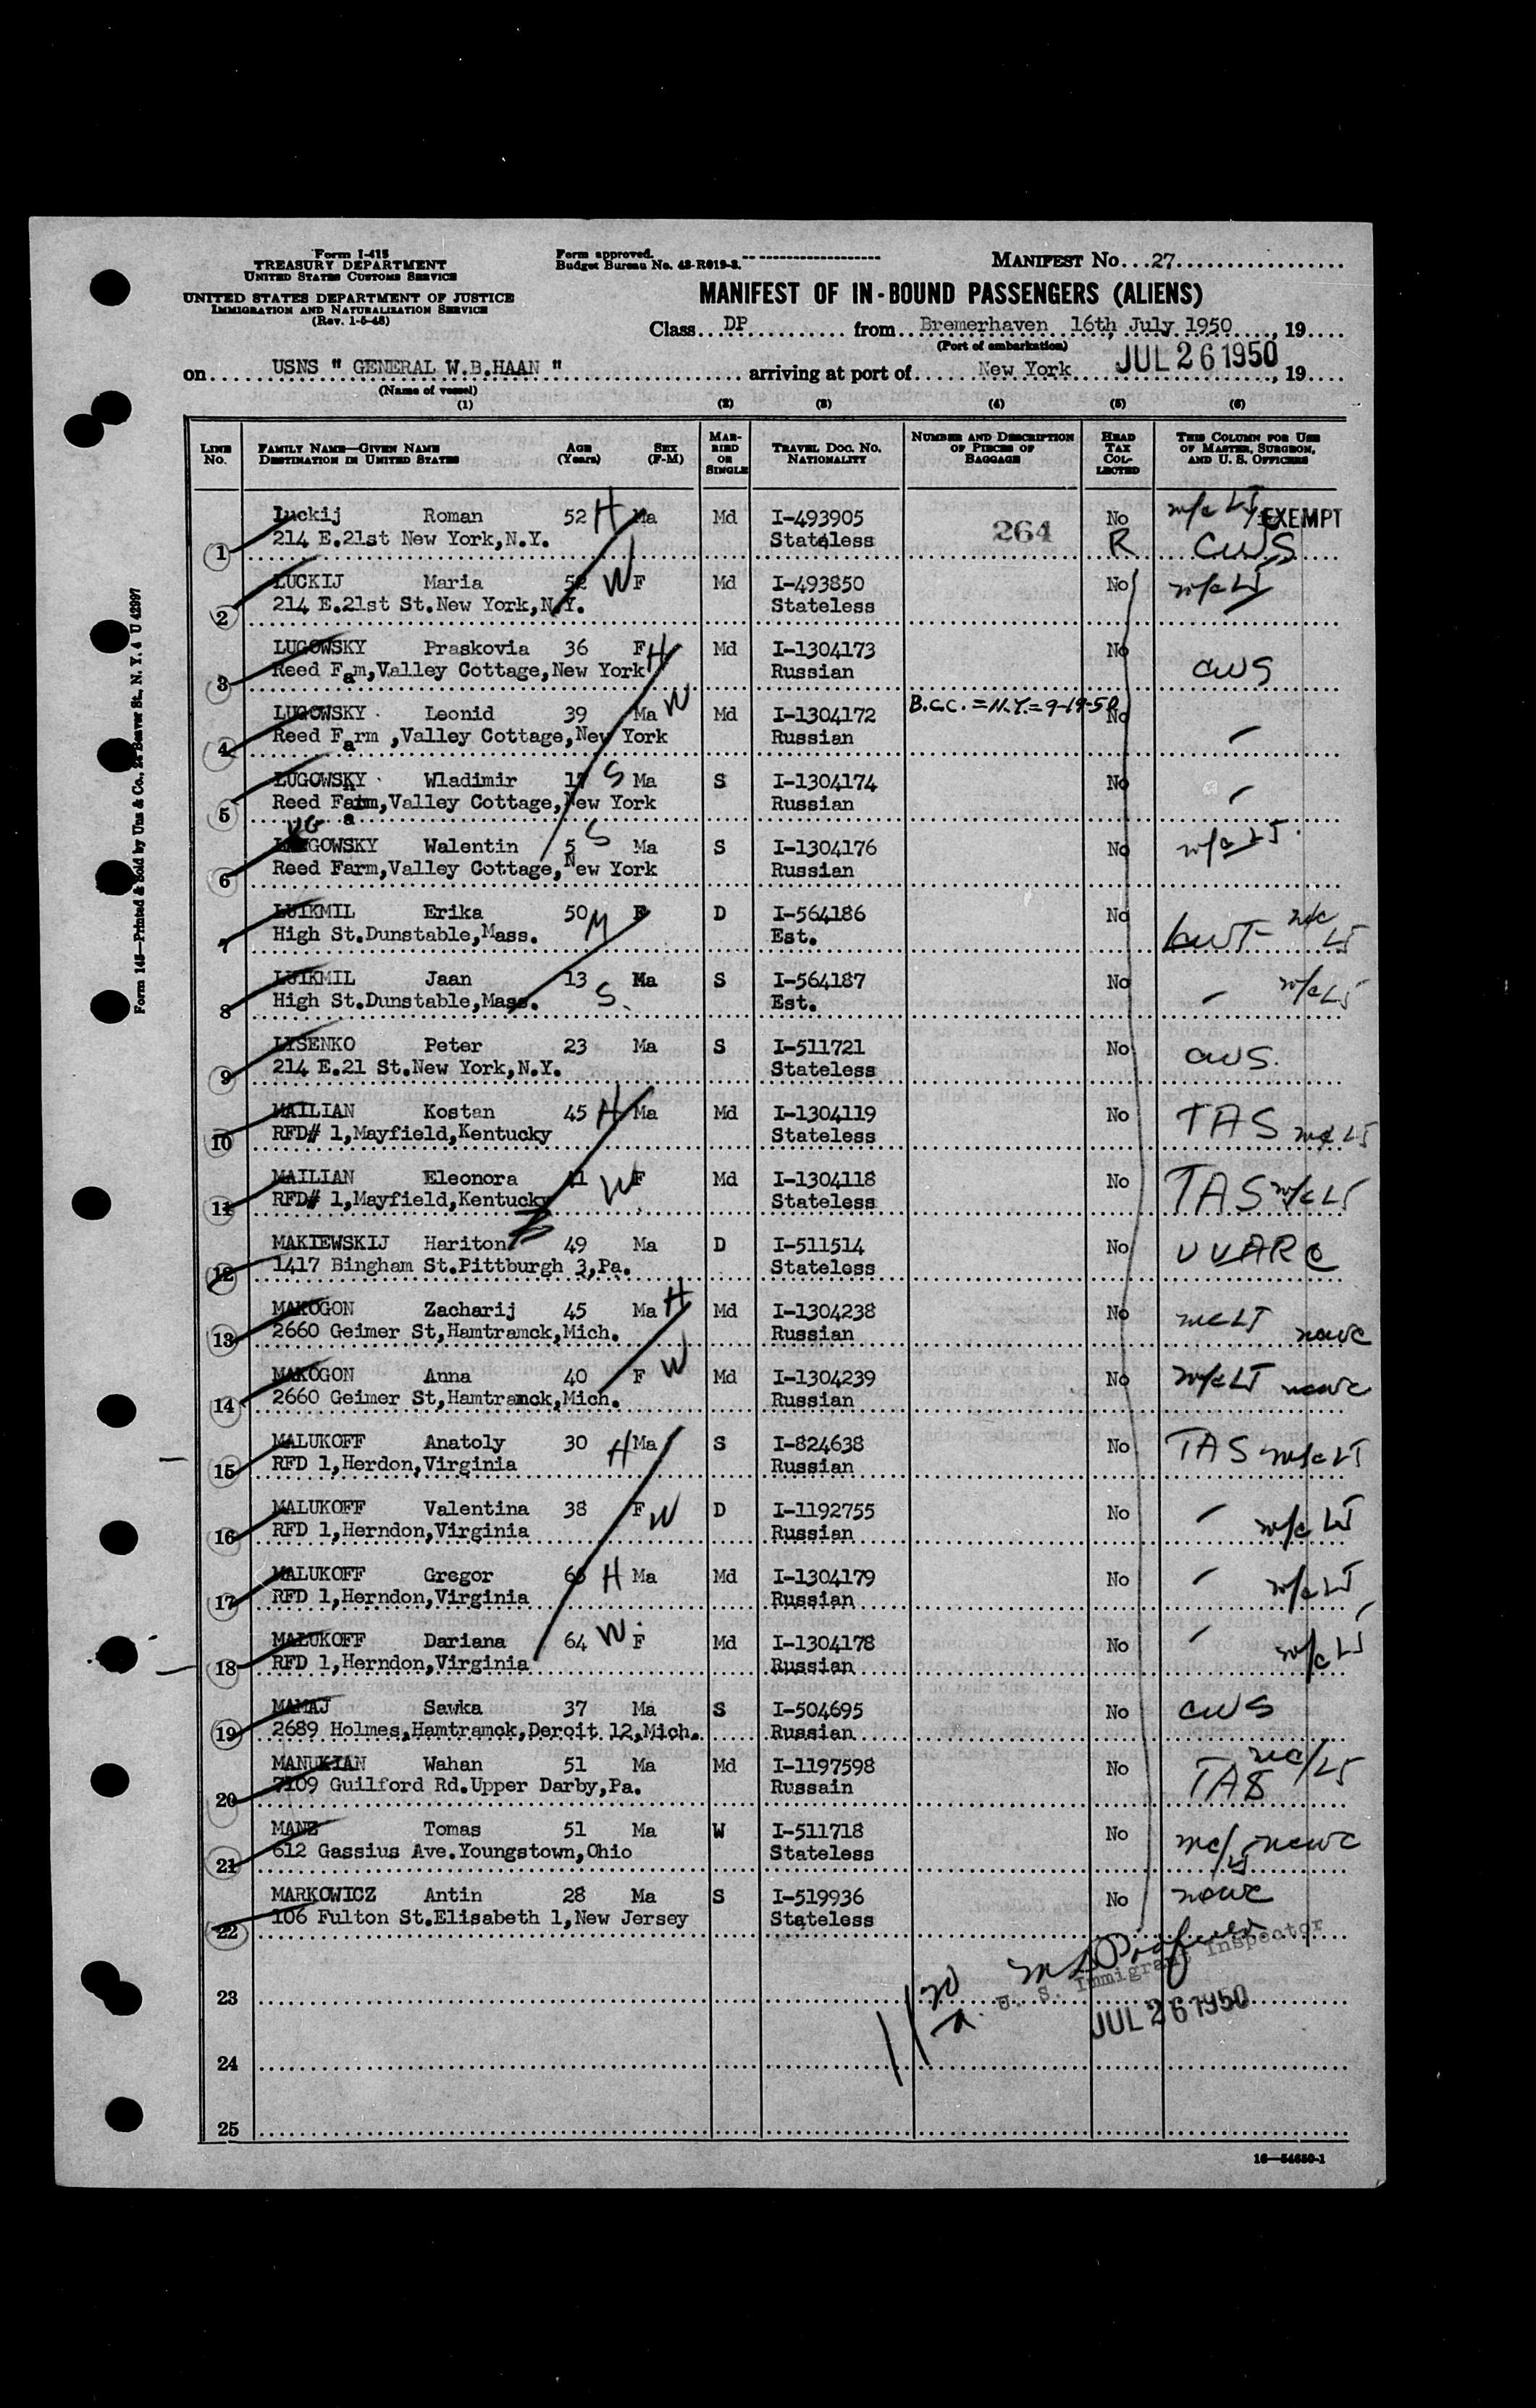 Form I-415
TREASURY DEPARTMENT
UNITED STATES CUSTOMS SERVICE
UNITED STATES DEPARTMENT OF JUSTICE
IMMIGRATION AND NATURALIZATION SERVICE
(Rev. 1-5-48)
Form approved.
Budget Bureau No. 43-R019-3.
MANIFEST No. 27
MANIFEST OF IN-BOUND PASSENGERS (ALIENS)
Class DP from Bremerhaven 16th, July 1950, 19
(Port of embarkation)
on USNS " GENERAL W.B.HAAN " arriving at port of New York JUL 26 1950, 19
(Name of vessel)
(1) (2) (3) (4) (5) (6)
LINE No. FAMILY NAME—GIVEN NAME DESTINATION IN UNITED STATES AGE (Years) SEX (F-M) MARRIED OR SINGLE TRAVEL DOC. No. NATIONALITY NUMBER AND DESCRIPTION OF PIECES OF BAGGAGE HEAD TAX COLLECTED THIS COLUMN FOR USE OF MASTER, SURGEON, AND U. S. OFFICERS
1 Luckij Roman 52 H Ma Md I-493905 264 No EXEMPT
214 E.21st New York,N.Y. Stateless R CWS
2 LUCKIJ Maria 52 W F Md I-493850 No
214 E.21st St.New York,N.Y. Stateless
3 LUGOWSKY Praskovia 36 F H Md I-1304173 No
Reed Fam,Valley Cottage,New York Russian CWS
4 LUGOWSKY Leonid 39 Ma W Md I-1304172 B.C.C.=N.Y.=9-19-50 No
Reed Farm ,Valley Cottage,New York Russian
5 LUGOWSKY Wladimir 17 S Ma S I-1304174 No
Reed Farm,Valley Cottage,New York Russian
6 LUGOWSKY Walentin 5 S Ma S I-1304176 No
Reed Farm,Valley Cottage,New York Russian
7 LUIKMIL Erika 50 M F D I-564186 No
High St.Dunstable,Mass. Est.
8 LUIKMIL Jaan 13 S. Ma S I-564187 No
High St.Dunstable,Mass. Est.
9 LYSENKO Peter 23 Ma S I-511721 No CWS.
214 E.21 St.New York,N.Y. Stateless
10 MAILIAN Kostan 45 H Ma Md I-1304119 No TAS
RFD# 1,Mayfield,Kentucky Stateless
11 MAILIAN Eleonora 41 W F Md I-1304118 No TAS
RFD# 1,Mayfield,Kentucky Stateless
12 MAKIEWSKIJ Hariton 49 Ma D I-511514 No UUARC
1417 Bingham St.Pittburgh 3,Pa. Stateless
13 MAKOGON Zacharij 45 Ma H Md I-1304238 No
2660 Geimer St,Hamtramck,Mich. Russian
14 MAKOGON Anna 40 F W Md I-1304239 No
2660 Geimer St,Hamtramck,Mich. Russian
15 MALUKOFF Anatoly 30 H Ma S I-824638 No TAS
RFD 1,Herdon,Virginia Russian
16 MALUKOFF Valentina 38 F W D I-1192755 No
RFD 1,Herndon,Virginia Russian
17 MALUKOFF Gregor 66 H Ma Md I-1304179 No
RFD 1,Herndon,Virginia Russian
18 MALUKOFF Dariana 64 W F Md I-1304178 No
RFD 1,Herndon,Virginia Russian
19 MAMAJ Sawka 37 Ma S I-504695 No CWS
2689 Holmes,Hamtramck,Deroit 12,Mich. Russian
20 MANUKIAN Wahan 51 Ma Md I-1197598 No
7109 Guilford Rd.Upper Darby,Pa. Russain TAS
21 MANZ Tomas 51 Ma W I-511718 No
612 Gassius Ave.Youngstown,Ohio Stateless
22 MARKOWICZ Antin 28 Ma S I-519936 No
106 Fulton St.Elisabeth 1,New Jersey Stateless
U. S. Immigrant Inspector
23
JUL 26 1950
24
25
16—54650-1
Form 145—Printed & Sold by Unz & Co., 24 Beaver St., N. Y. 4 U 42997